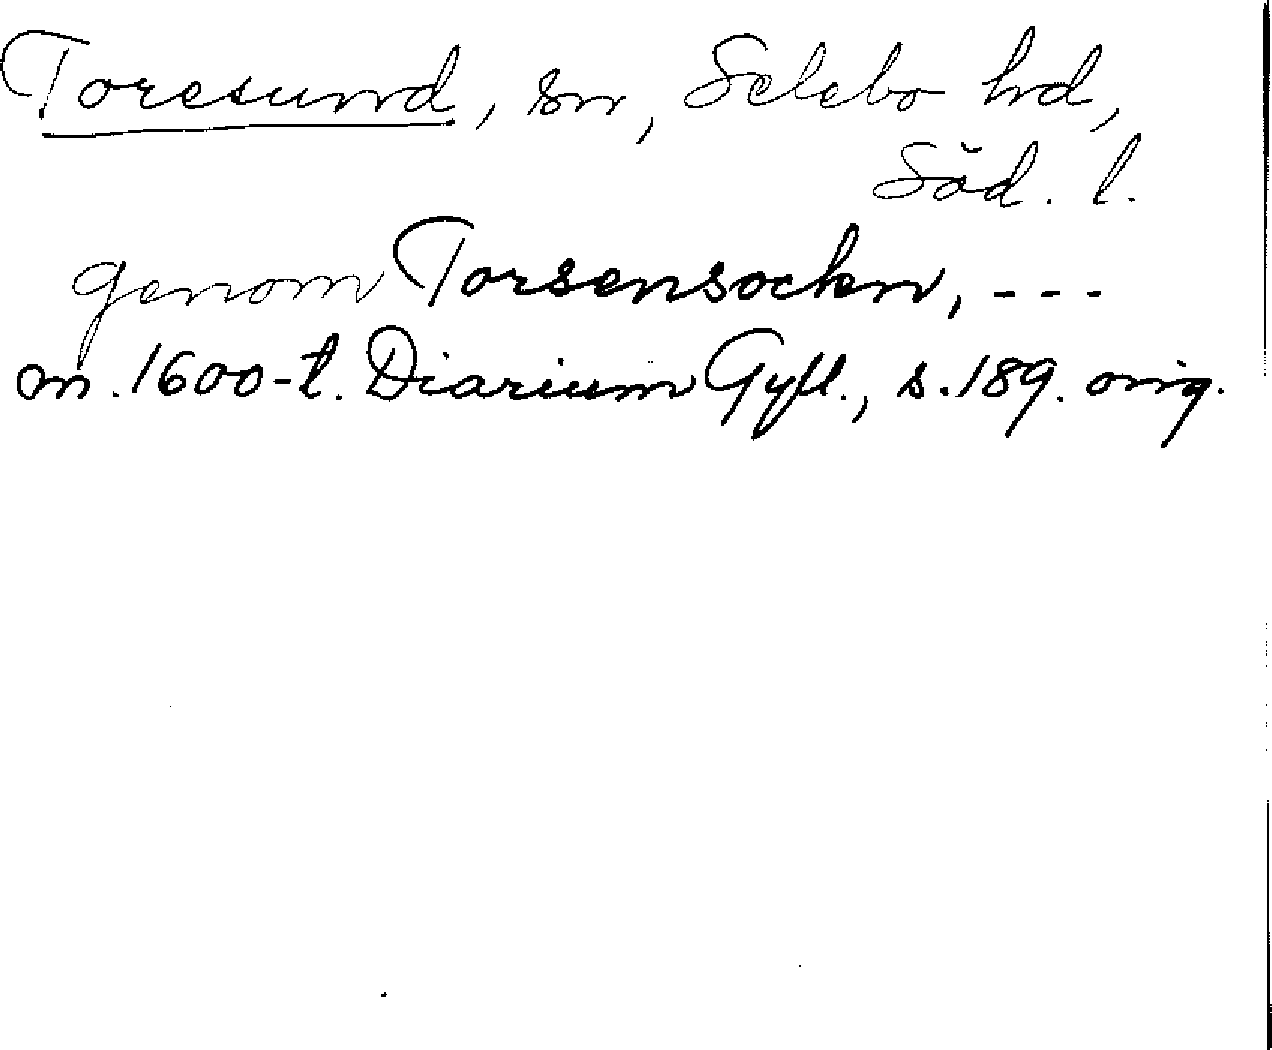 Toresund, sn, Selebo hd,
Söd. l.
genom Torsensockn, ---
m. 1600-t. Diarium Gyll., s. 189. orig.